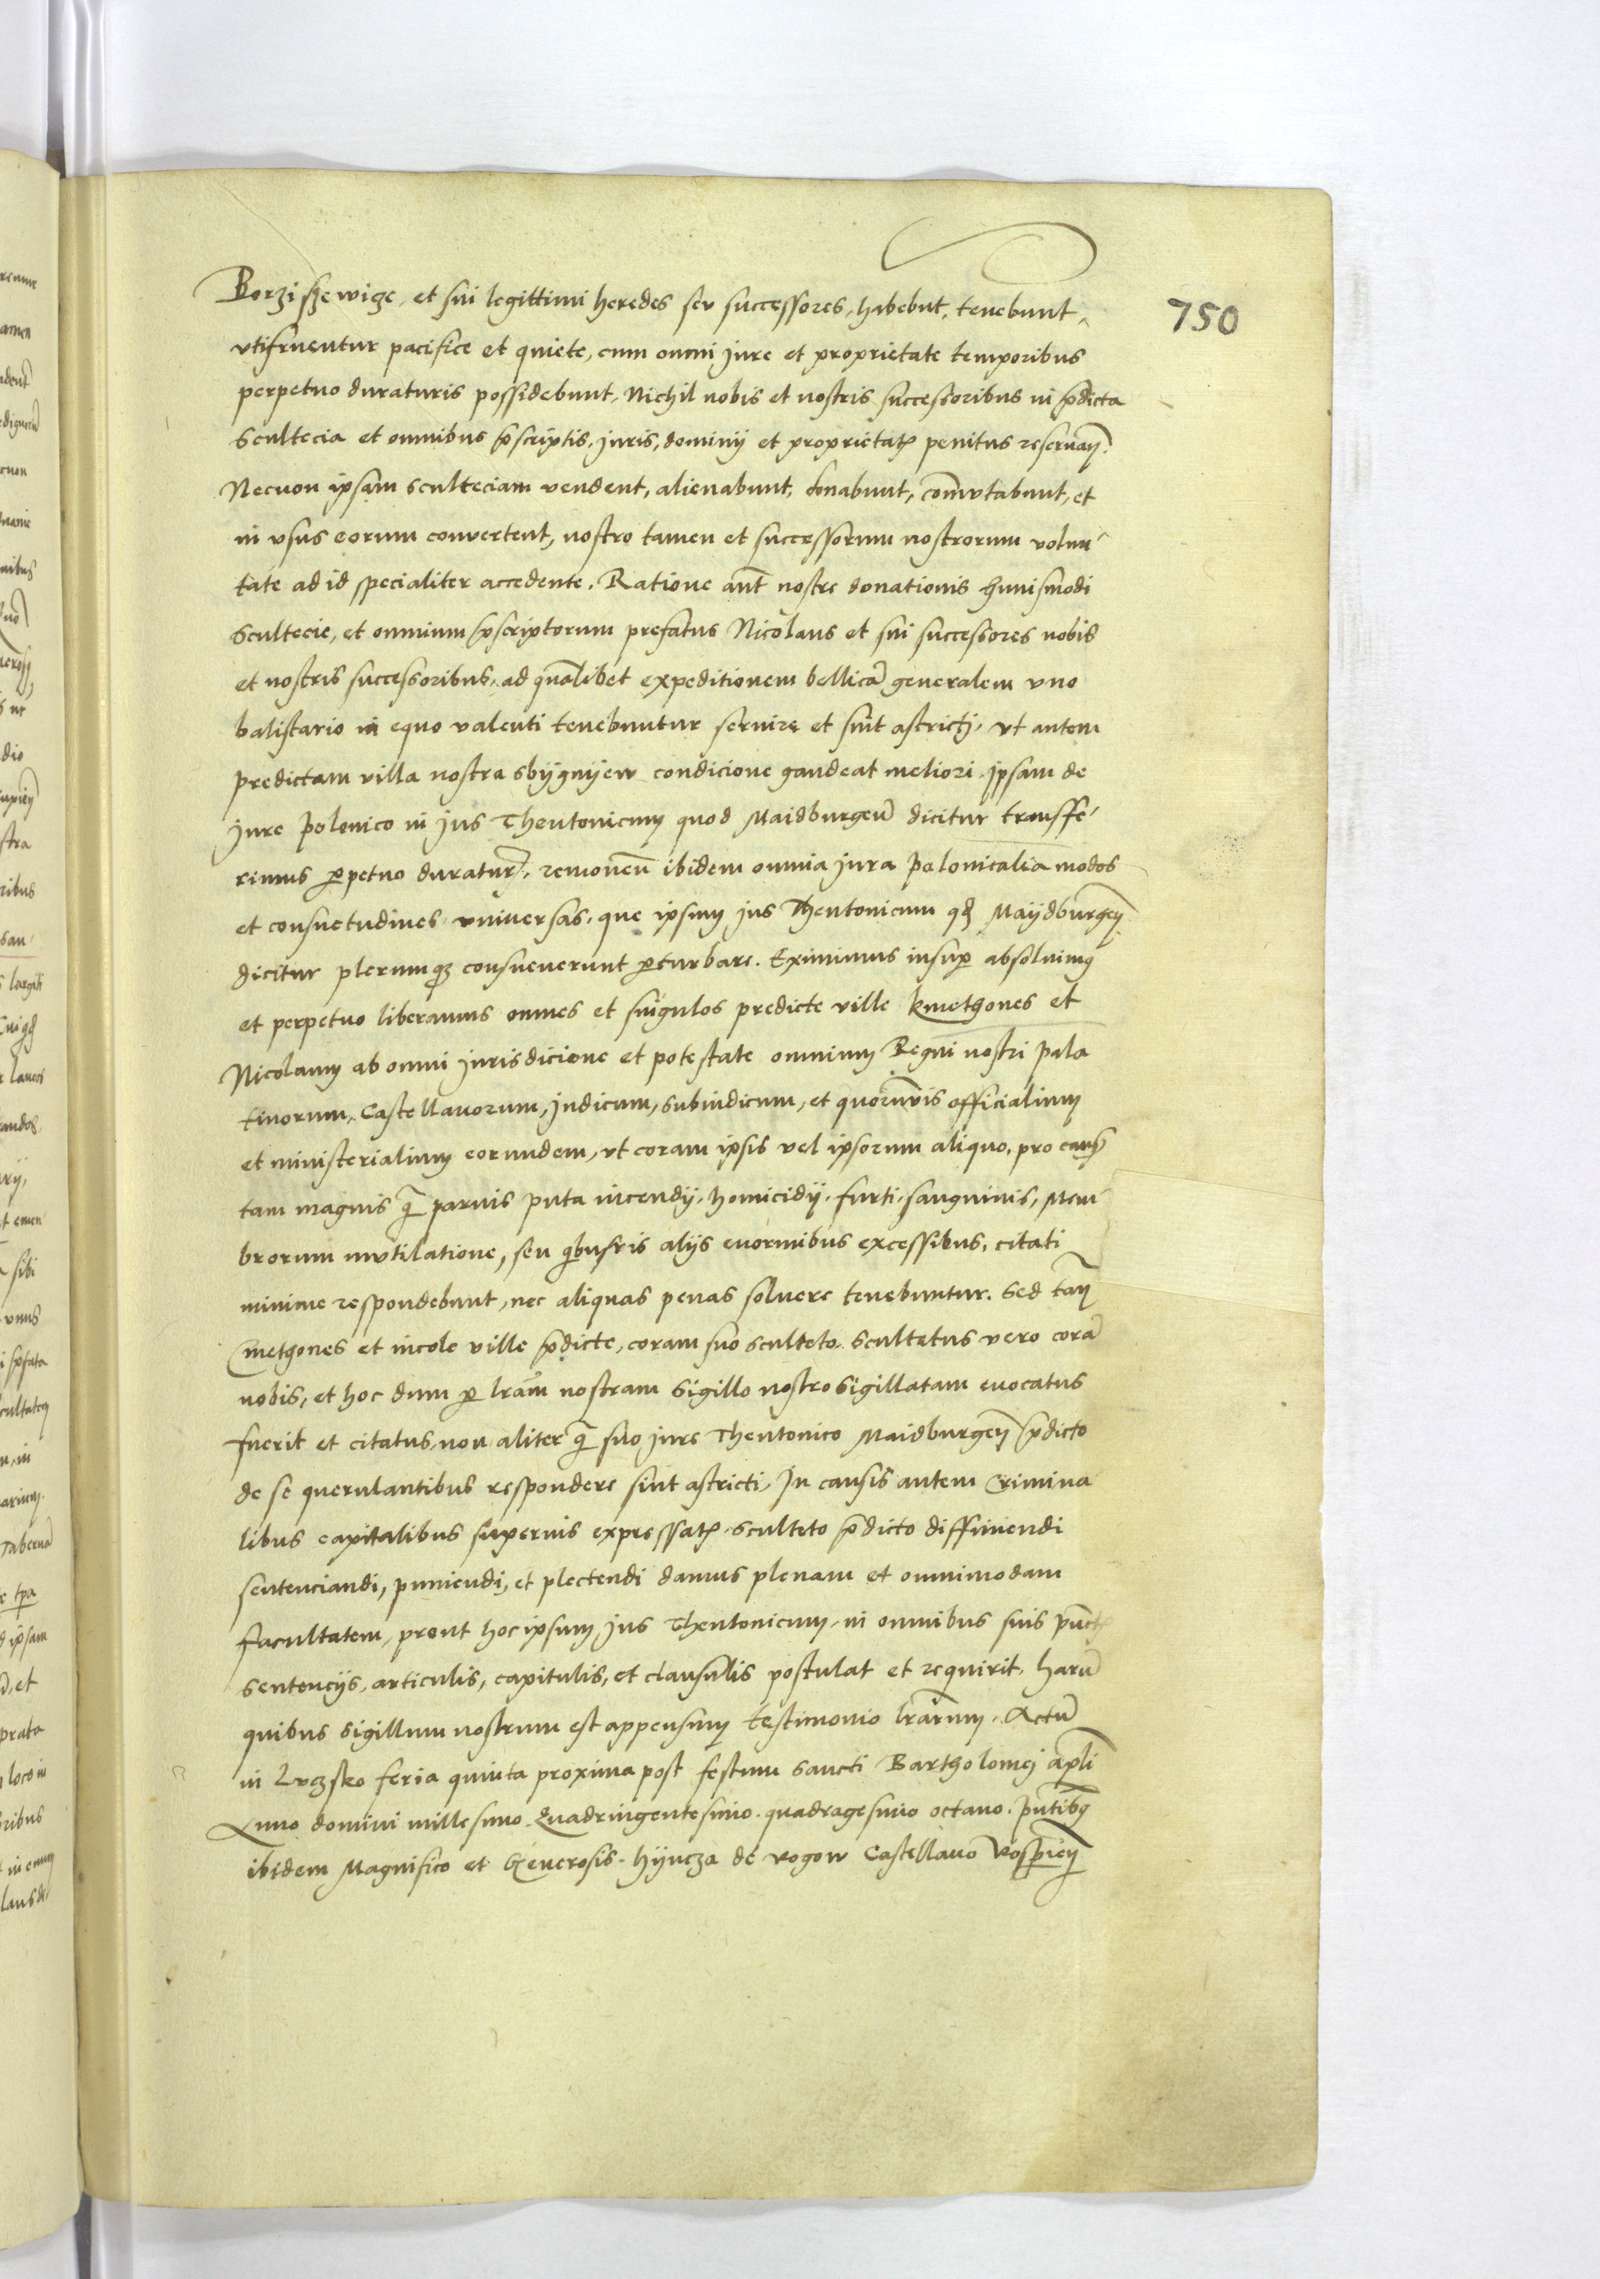 750
Borziszewicze, et sui legittimi heredes seu successores, habebnt, tenebunt,
vtifruentur pacifice et quiete, cum omni jure et proprietate temporibus
perpetuo duraturis possidebunt, Nichil nobis et nostris successoribus in p̄dicta
Scultecia et omnibus p̄scriptis, juris, dominij et proprietatꝭ penitus reseruan̄.
Necnon ipsam sculteciam vendent, alienabunt, donabunt, com̄vtabunt, et
in vsus eorum convertent, nostro tamen et successorum nostrorum volun-
tate ad id specialiter accedente. Ratione aūt nostre donationis huiusmodi
Scultecie, et omnium p̄scriptorum prefatus Nicolaus et sui successores nobis
et nostris successoribus, ad qualibet expeditionem bellicā generalem vno
balistario in equo valenti tenebuntur seruire et sint astricti, vt autem
predictam villa nostra sbijgnijew condicione gaudeat meliori, jpsam de
jure polonico in jus Theutonicum quod Maidburgeñ dicitur transffe-
rimus ꝑpetuo duratur̄, remoueñ ibidem omnia jura polonicalia modos
et consuetudines vniuersas, que ipsum jus Theutonicum qđ Maijdburgen̄
dicitur plerumqꝫ consueuerunt ꝑturbare. Eximimus insuꝑ absoluimus
et perpetuo liberamus omnes et singulos predicte ville kmethones et
Nicolaum ab omni jurisdicione et potestate omnium Regni nostri pala
tinorum, Castellanorum, judicum, subiudicum, et quorumvis officialium
et ministerialium eorundem, vt coram ipsis vel ipsorum aliquo, pro caus̄
tam magnis q̄ paruis puta incendij, homicidij, furti, sanguinis, Mem-
brorum mvtilatione, seu qbusuis alijs enormibus excessibus, citati
minime respondebunt, nec aliquas penas soluere tenebuntur. Sed tañ
Cmethones et incole ville p̄dicte, coram suo sculteto, scultetus vero corā
nobis, et hoc dum ꝑ lrām nostram sigillo nostro sigillatam euocatus
fuerit et citatus, non aliter q̄ suo jure Theutonico Maidburgen̄ p̄dicto
de se querulantibus respondere sint astricti, In causis autem Crimina
libus capitalibus superius expressatꝭ, sculteto p̄dicto diffiniendi
sentenciandi, puniendi, et plectendi damus plenam et omnimodam
facultatem, prout hoc ipsum jus Theutonicum, in omnibus suis punctꝭ
sentencijs, articulis, capitulis, et clausulis postulat et requirit, harū
quibus sigillum nostrum est appensum testimonio lrārum. Actū
in Luczsko feria quinta proxima post festum sancti Bartholomej apl̄i
Anno domini millesimo Quadringentesimo quadragesimo octauo. pn̄tibus
ibidem Magnifico et Generosis hijncza de rogow Castellano Rosꝑien̄